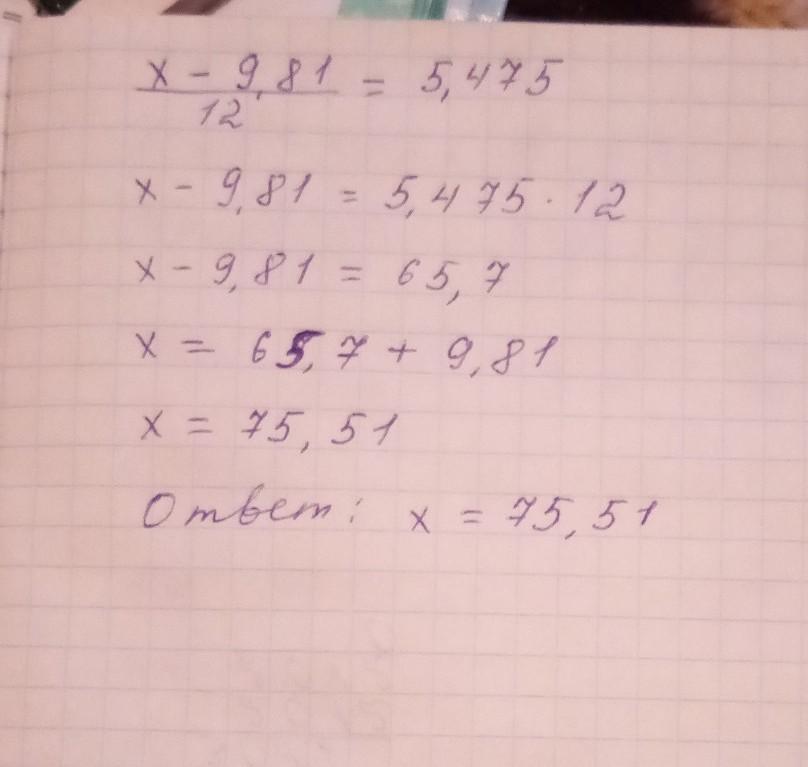 x - 9,81 / 12 = 5,475
x - 9,81 = 5,475 · 12
x - 9,81 = 65,7
x = 65,7 + 9,81
x = 75,51
Ответ: x = 75,51